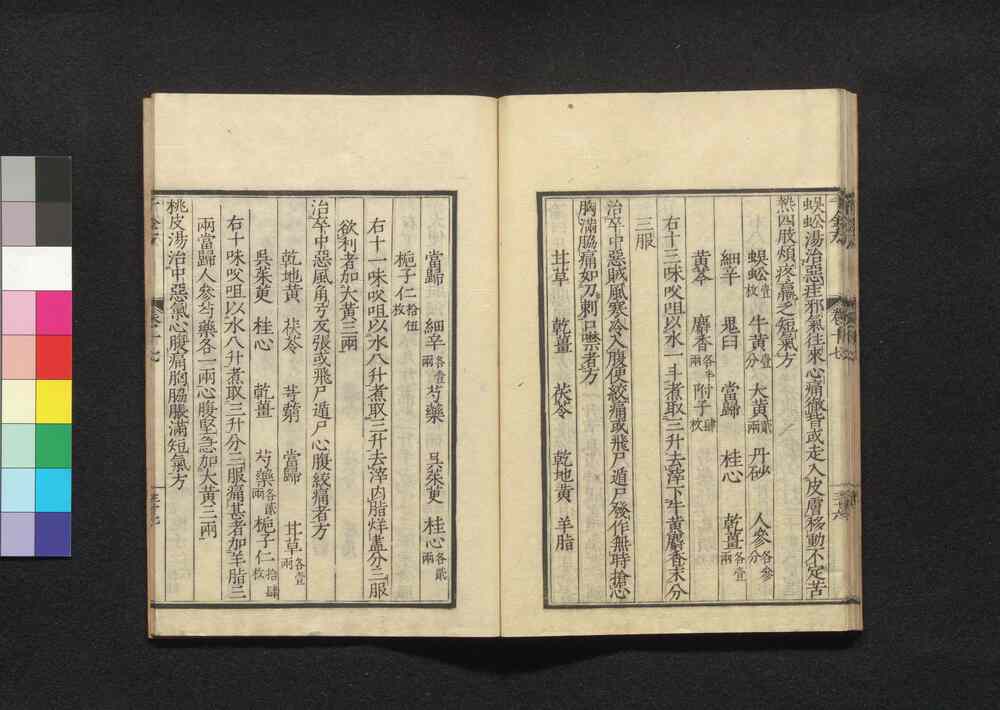 蜈蚣湯治惡疰邪氣往來心痛徹背或走入皮膚移動不定苦
熱四肢煩疼羸乏短氣方
蜈蚣壹枚 牛黃壹分 大黃貳兩 丹砂 人參各參分
細辛 鬼臼 當歸 桂心 乾薑各壹兩
黃芩 麝香各半兩 附子肆枚
右十三味㕮咀以水一斗煮取三升去滓下牛黃麝香末分
三服
治卒中惡賊風寒冷入腹便絞痛或飛尸遁尸發作無時搶心
胸滿脇痛如刀刺口噤者方
甘草 乾薑 茯苓 乾地黃 羊脂
當歸 細辛各壹兩 芍藥 吳茱萸 桂心各貳兩
梔子仁拾伍枚
右十一味㕮咀以水八升煮取三升去滓內脂烊盡分三服
欲利者加大黃三兩
治卒中惡風角弓反張或飛尸遁尸心腹絞痛者方
乾地黃 茯苓 芎藭 當歸 甘草各壹兩
吳茱萸 桂心 乾薑 芍藥各貳兩 梔子仁拾肆枚
右十味㕮咀以水八升煮取三升分三服痛甚者加羊脂三
兩當歸人參芍藥各一兩心腹堅急加大黃三兩
桃皮湯治中惡氣心腹痛胸脇脹滿短氣方